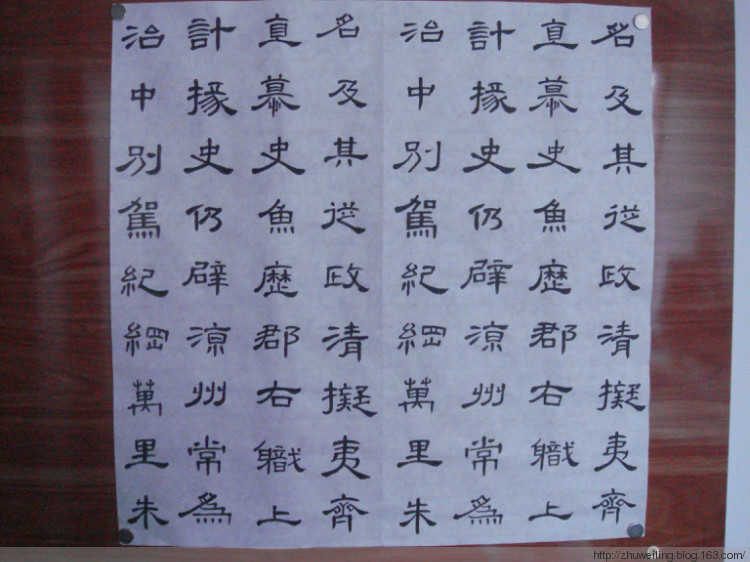 名及其從政清擬夷齊
直慕史魚歷郡右職上
計掾史仍辟涼州常為
治中別駕紀綱萬里朱
名及其從政清擬夷齊
直慕史魚歷郡右職上
計掾史仍辟涼州常為
治中別駕紀綱萬里朱
http://zhuweiling.blog.163.com/